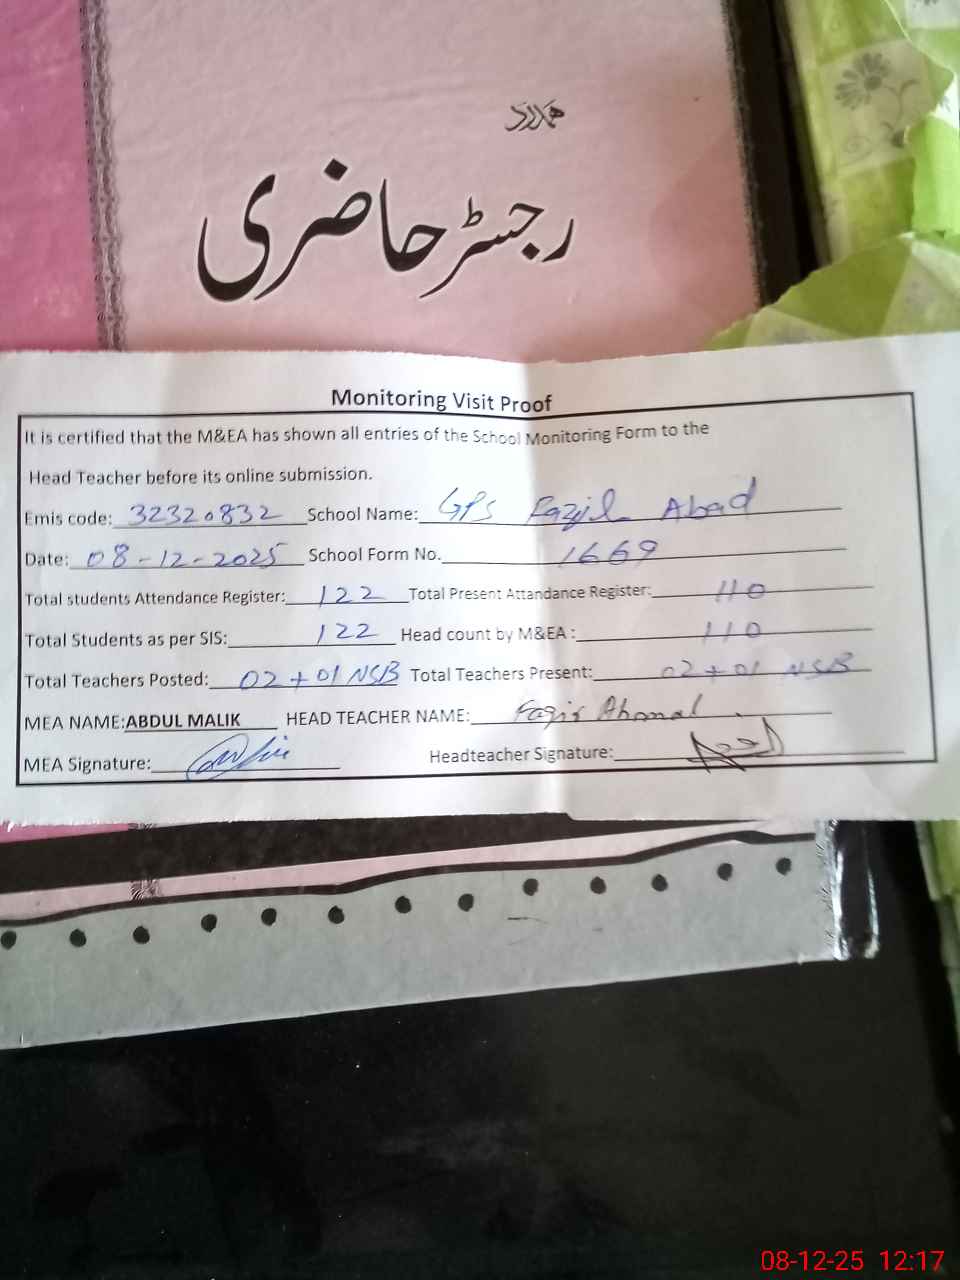 ہمدرد
رجسٹر حاضری
Monitoring Visit Proof
It is certified that the M&EA has shown all entries of the School Monitoring Form to the
Head Teacher before its online submission.
Emis code: 32320832 School Name: GPS Fazil Abad
Date: 08-12-2025 School Form No. 1669
Total students Attendance Register: 122 Total Present Attandance Register: 110
Total Students as per SIS: 122 Head count by M&EA : 110
Total Teachers Posted: 02 + 01 NSB Total Teachers Present: 02 + 01 NSB
MEA NAME:ABDUL MALIK HEAD TEACHER NAME: Ahmad
MEA Signature: Headteacher Signature:
08-12-25 12:17